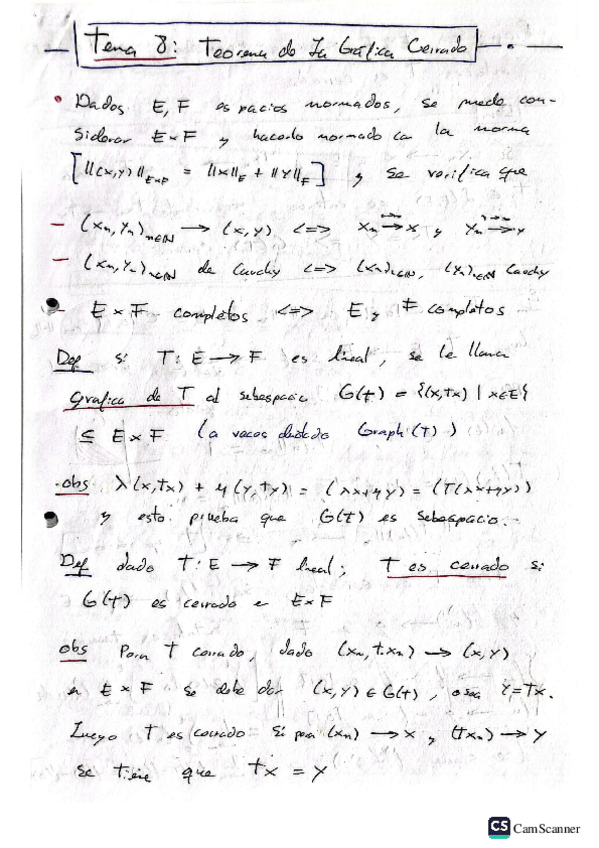 Tema 8: Teorema de la Gráfica Cerrada
• Dados E, F espacios normados, se puede con-
siderar E×F y hacerlo normado con la norma
[||(x,y)||_{E×F} = ||x||_E + ||y||_F] y se verifica que
- (xₙ, yₙ)_{n∈ℕ} → (x, y) <=> xₙ → x y yₙ → y
- (xₙ, yₙ)_{n∈ℕ} de Cauchy <=> (xₙ)_{n∈ℕ}, (yₙ)_{n∈ℕ} Cauchy
- E × F completos <=> E y F completos
Def si T: E → F es lineal, se le llama
grafica de T al subespacio G(t) = {(x,tx) | x∈E}
⊆ E × F (a veces denotado Graph(T))
·obs λ(x,tx) + μ(y,ty) = (λx+μy) = (T(λx+μy))
y esto prueba que G(t) es subespacio.-
Def dado T: E → F lineal; T es cerrado si
G(t) es cerrado en E×F
obs Para T cerrado, dado (xₙ, t.xₙ) → (x, y)
en E × F se debe dar (x, y) ∈ G(t), o sea y=Tx.
Luego T es cerrado si para (xₙ) → x y (txₙ) → y
se tiene que tx = y
CS CamScanner